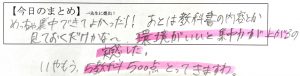 【今日のまとめ】
めっちゃ集中できてよかった!! あとは教科書の内容とか
見ておくだけかな〜 環境がいいと集中力が上がるの
感した。
いやもう、5教科500点とってきますわ。